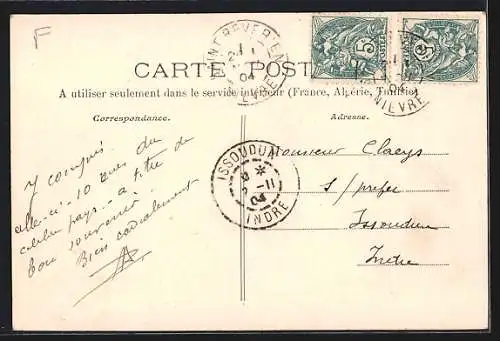 F
CARTE POST
A utiliser seulement dans le service intérieur (France, Algérie, Tunisie)
Correspondance.
Adresse.
Y compris
celle-ci - 10 vues du
pays - à titre de
bon souvenir
Bien cordialement
Monsieur Claeys
s/préfet
Issoudun
Indre
ISSOUDUN
-11
04
INDRE
5
POSTES
5
04
NIEVRE